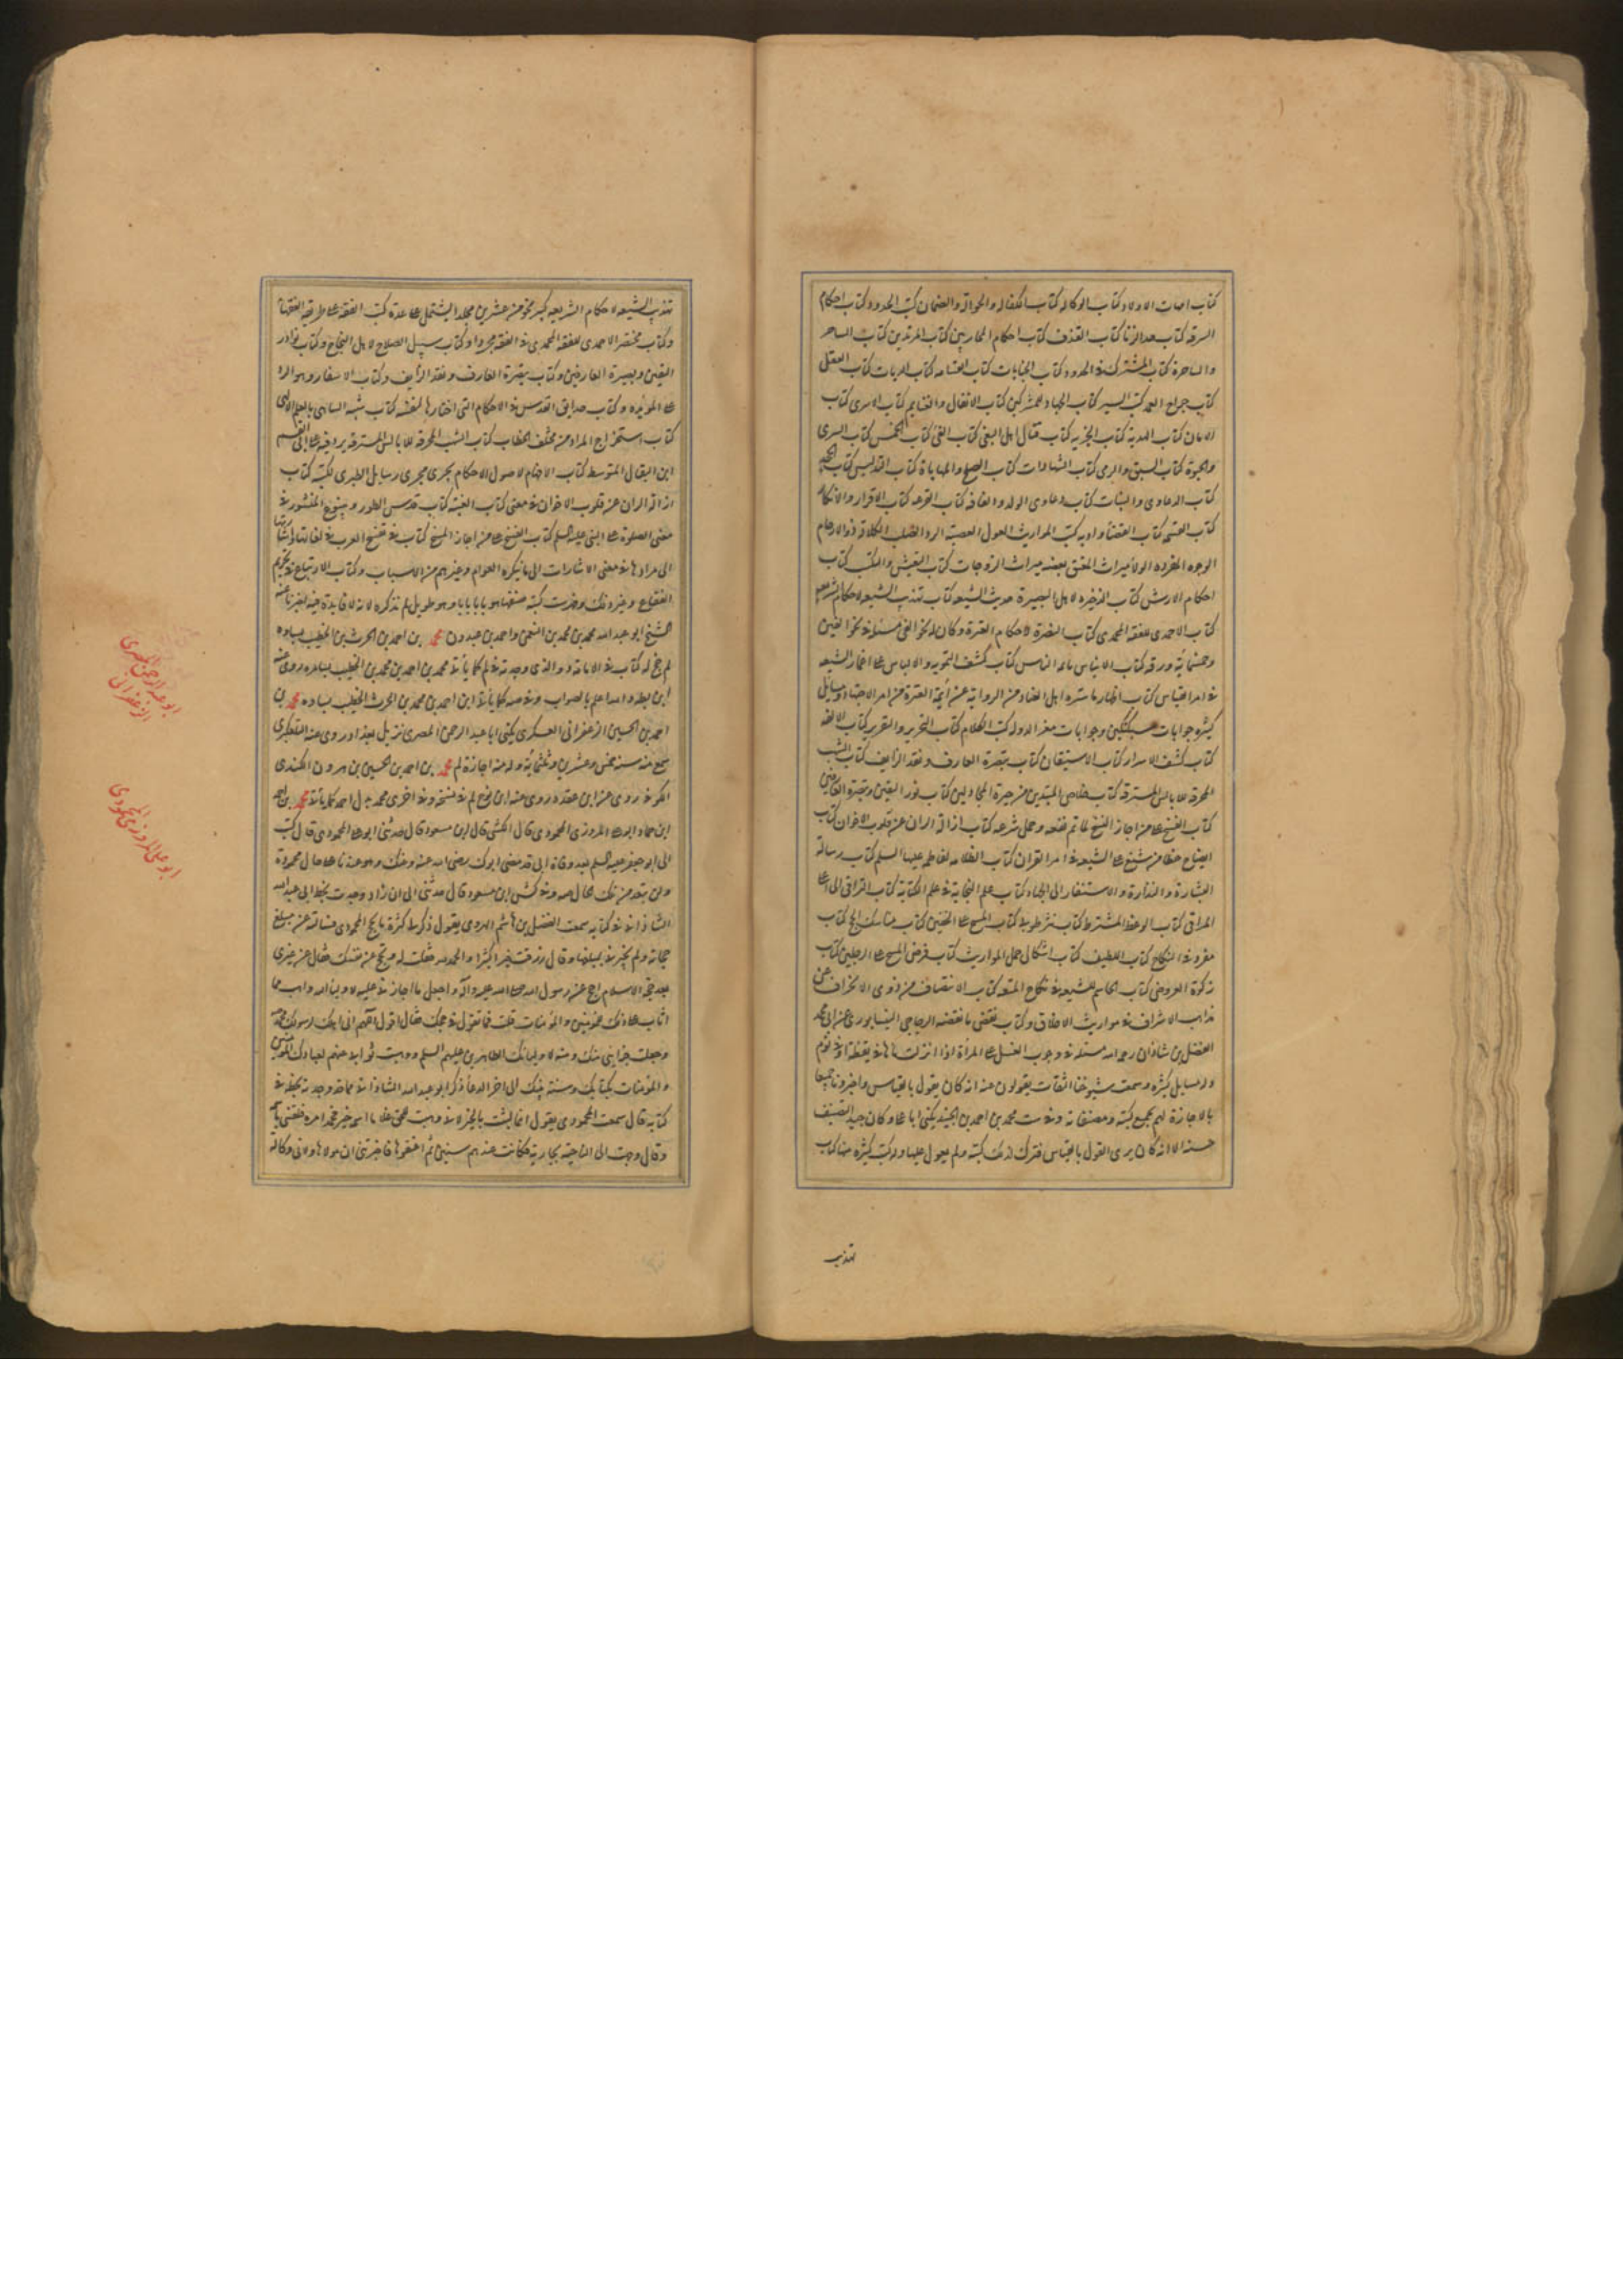 كتاب امهات الاولاد كتاب الوكاله كتاب الكفاله والحوالة والضمان كتب الحدود كتاب احكام
السرقه كتاب حد الزنا كتاب القذف كتاب احكام المحاربين كتاب المرتدين كتاب الساحر
والساحرة كتاب المشترك في الحدود كتاب الجنايات كتاب القسامه كتاب الديات كتاب العقل
كتاب جراح العمد كتب السير كتاب الجهاد للمشركين كتاب الانفال والغنايم كتاب الاسرى كتاب
الامان كتاب الهدنة كتاب الجزيه كتاب قتال اهل البغى كتاب الفئ كتاب الخمس كتاب السرى
كتاب السبق والرمى كتاب الشهادات كتاب الصلح والمهاياة كتاب التدليس كتاب
كتاب الدعاوى والبينات كتاب دعاوى الولد والقافه كتاب القرعه كتاب الاقرار والانكار
كتاب القسمه كتاب القضا وادبه كتب المواريث العول العصبة الرد الصلب الكلالة ذو الارحام
الوجوه المفرده الولا ميراث المعتق بعضه ميراث الزوجات كتاب
احكام الارش كتاب الذخيره لاهل البصيرة حديث الشيعه كتاب تهذيب الشيعه لاحكام الشريعه
كتاب الاحمدى للفقه المحمدى كتاب النصرة لاحكام العترة وكان له نحو الفى مسئلة فى نحو الفين
وخمسمائة ورقه كتاب الايناس بائمه الناس كتاب كشف التمويه والالباس على اغمار الشيعه
فى امر القياس كتاب اظهار ما ستره اهل العناد من الرواية عن أئمة العترة من امر الاجتهاد ومسائل
كثيره جوابات سبكتكين وجوابات معز الدوله كتب الكلام كتاب التحرير والتقرير كتاب الالفه
كتاب كشف الاسرار كتاب الاستيقان كتاب تبصرة العارف ونقد الزايف كتاب الشهب
المحرقه للابالسة المسترقه كتاب خلاص المبتدين من حيرة المجادلين كتاب نور اليقين وتبصرة العارفين
كتاب الفسخ على من اجاز النسخ لما تم نفعه وجمل شرعه كتاب ازالة الران عن قلوب الاخوان كتاب
ايضاح خطا من شنع على الشيعه فى امر القران كتاب الظلامه لفاطمه عليها السلم كتاب رسالة
البشارة والنذارة والاستنفار الى الجهاد كتاب علم النجابة فى علم الكتابة كتاب التراقى الى اعلى
المراقى كتاب الوعظ المشترط كتاب كتاب المسح على الخفين كتاب مناسك الحج كتاب
مفرد فى النكاح كتاب اللطيف كتاب اشكال جمل المواريث كتاب فرض المسح على الرجلين كتاب
زكوة العروض كتاب الحاسم للشيعه فى نكاح المتعه كتاب الانتصاف من ذوى الانحراف عن
مذاهب الاشراف فى مواريث الاخلاف وكتاب نقض ما نقضه الزجاجى النيسابورى على ابى محمد
الفضل بن شاذان رحمه الله مسئله فى وجوب الغسل على المرأة اذا انزلت ماءها فى يقظة او فى نوم
وله مسايل كثيره وسمعت شيوخنا الثقات يقولون عنه انه كان يقول بالقياس واخبرونا جميعا
بالاجازة لهم بجميع كتبه ومصنفاته وفى ست محمد بن احمد بن الجنيد يكنى ابا على وكان جيد التصنيف
حسنه الا انه كان يرى القول بالقياس فترك لذلك كتبه ولم يعول عليها وله كتب كثيره منها كتاب
تهذيب
تهذيب الشيعه لاحكام الشريعه كبير نحو من عشرين مجلد ا يشتمل على عدة كتب الفقه على طريقه الفقها
وكتاب مختصر الاحمدى للفقه المحمدى فى الفقه مجردا وكتاب سبيل الصلاح لاهل النجاح وكتاب نوادر
اليقين وبصيرة العارفين وكتاب تبصرة العارف ونقد الزايف وكتاب الاسفار وهو الرد
على المؤبده وكتاب حدايق القدس فى الاحكام التى اختارها لنفسه كتاب تنبه الساهى بالعلم الالهى
كتاب استخراج المراد من مختلف الخطاب كتاب الشهب المحرقه للابالسة المسترقه يرد فيه على ابى القسم
ابن البقال المتوسط كتاب الافهام لاصول الاحكام يجرى مجرى رسايل الطبرى لكتبه كتاب
ازالة الران عن قلوب الاخوان فى معنى كتاب الغيبه كتاب قدس الطور وينبوع المنثور فى
معنى الصلوة على النبى عليه السلم كتاب الفسخ على من اجاز النسخ كتاب فى تفسح العرب فى لغاتها واشاراتها
الى مرادها فى معنى الاشارات الى ما ينكره العوام وغيرهم من الاسباب وكتاب الارتياع فى تحريم
الفقاع وغير ذلك وفهرست كتبه صنفها هو بابا بابا وهو طويل لم نذكره لانه لا فايدة فيه اخبرنا عنه
الشيخ ابو عبد الله محمد بن محمد بن النعمن واحمد بن عبدون محمد بن احمد بن الحرث بن الخطيب بساوه
لم جخ له كتاب فى الامامة د والذى وجدته فى لم كما يأتى محمد بن احمد بن محمد بن الخطيب بساوه روى عنه
ابن بطه والله اعلم بالصواب وفى ضه كما يأتى ابن احمد بن محمد بن الحرث الخطيب بساوه محمد بن
احمد بن الحسين الزعفرانى العسكرى يكنى ابا عبد الرحمن المصرى نزيل بغداد روى عنه التلعكبرى
سمع منه سنه خمس وعشرين وثلثمائة وله منه اجازة لم محمد بن احمد بن الحسين بن هرون الكندى
الكوفى روى عن ابن عقده روى عنه ابن نوح لم فى نسخه وفى اخرى محمد بدل احمد كما يأتى محمد بن احمد
ابن حماد ابو على المروزى المحمودى قال الكشى قال ابن مسعود قال حدثنى ابو على المحمودى قال كتب
الى ابو جعفر عليه السلم بعد وفاة ابى قد مضى ابوك رضى الله عنه وعنك وهو عندنا على حال محمودة
ولن تبعد من تلك الحال صه وفى كش ابن مسعود قال حدثنى الى ان زاد وجدت بخط ابى عبد الله
الشاذانى فى كتابه سمعت الفضل بن هاشم الهروى يقول ذكر لى كثرة ما يحج المحمودى فسالته عن مبلغ
حجاته ولم يخبرنى بمبلغها وقال رزقت خيرا كثيرا والحمد لله فقلت له فتحج عن نفسك فقال عن غيرى
بعد حجة الاسلام احج عن رسول الله صلى الله عليه وآله واجعل ما اجازنى عليه لاولياء الله واهب مما
اثاب على ذلك للمؤمنين والمؤمنات قلت فما تقول فى حجك فقال اقول اللهم انى اهللت لرسولك محمد
وجعلت جزايى منك ومنه لاوليائك الطاهرين عليهم السلم ووهبت ثوابى عنهم لعبادك المؤمنين
والمؤمنات بكتابك وسنة نبيك الى اخر الدعا ذكر ابو عبد الله الشاذانى مما قد وجدته بخطه فى
كتابه قال سمعت المحمودى يقول انما لقبت بالخير لانى وهبت للحق غلاما اسمه خير فحمد امره فلقبنى باسمه
وقال وجهت الى الناحية بجارية فكانت عندهم سنين ثم اعتقوها فاخبرتنى ان مولاها ولانى وكالة
ابو عبد الرحمن المصرى
الزعفرانى
ابو على المروزى المحمودى